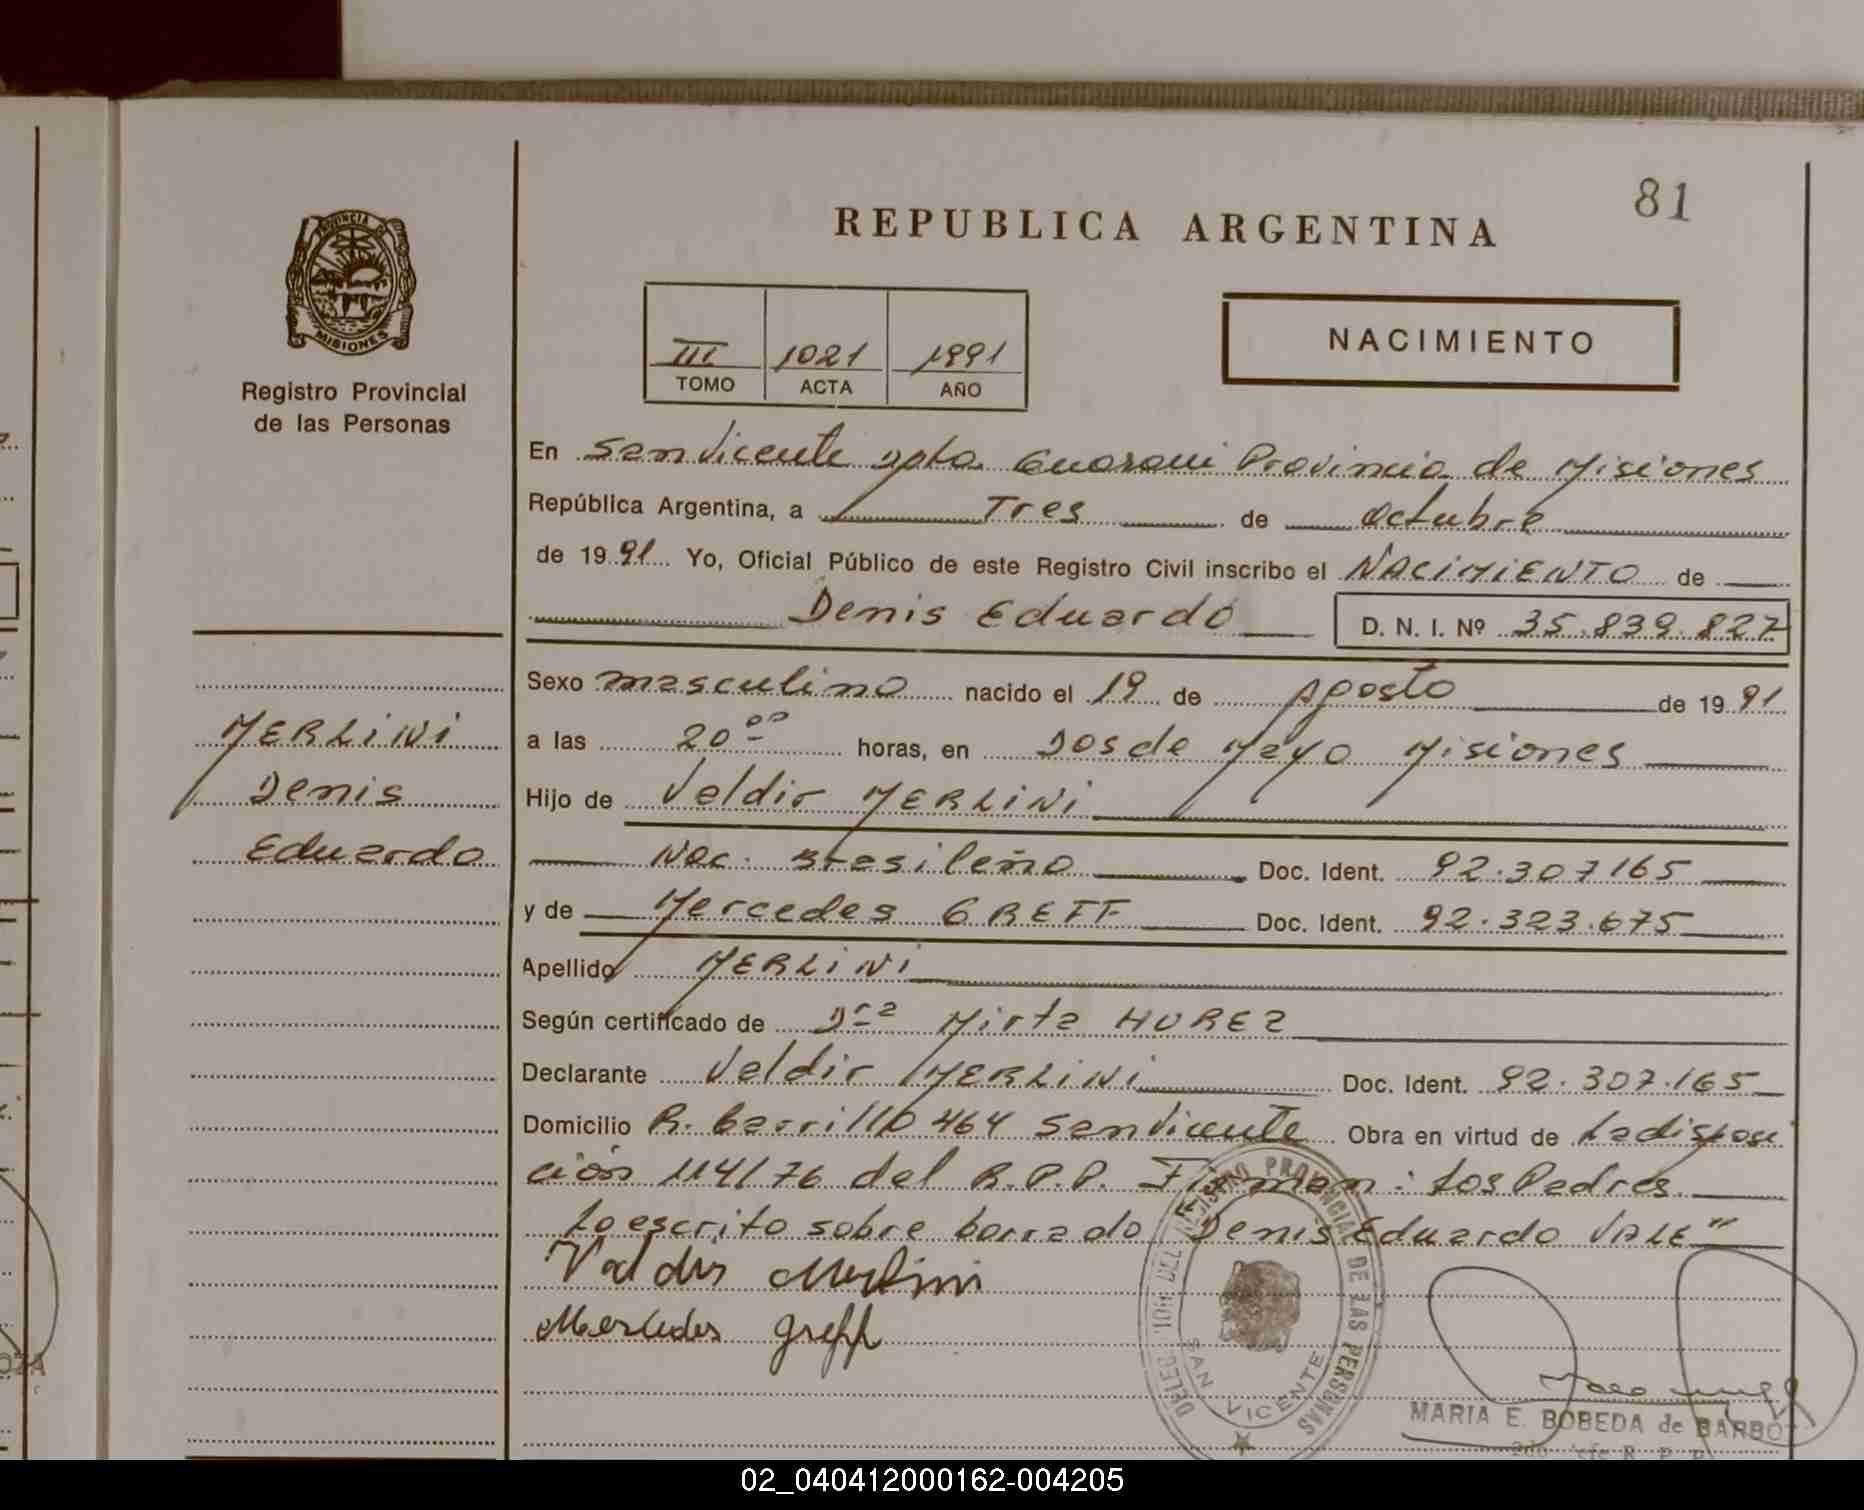 81
REPUBLICA ARGENTINA
PROVINCIA DE
MISIONES
Registro Provincial
de las Personas
III 1021 1991
TOMO ACTA AÑO
NACIMIENTO
En San Vicente Dpto. Guarani Provincia de Misiones
República Argentina, a Tres de octubre
de 1991 Yo, Oficial Público de este Registro Civil inscribo el NACIMIENTO de
Denis Eduardo D. N. I. Nº 35.839.827
Sexo masculino nacido el 19 de Agosto de 1991
MERLINI
Denis
Eduardo
a las 20 00 horas, en Dos de Mayo Misiones
Hijo de Valdir MERLINI
Nac. Brasileño Doc. Ident. 92.307165
y de Mercedes GREFF Doc. Ident. 92.323.675
Apellido MERLINI
Según certificado de Dra Mirta HUREZ
Declarante Valdir MERLINI Doc. Ident. 92.307.165
Domicilio R. Carrillo 464 San Vicente Obra en virtud de La disposi
ción 114/76 del R.P.P. Firman: Los Padres
Lo escrito sobre borrado Denis Eduardo VALE"
Valdir Merlini
Mercedes Greff
DEL REGISTRO PROVINCIAL DE LAS PERSONAS
SAN VICENTE
MARIA E. BOBEDA de BARBO
2do. Jefe R. P. P.
02_040412000162-004205